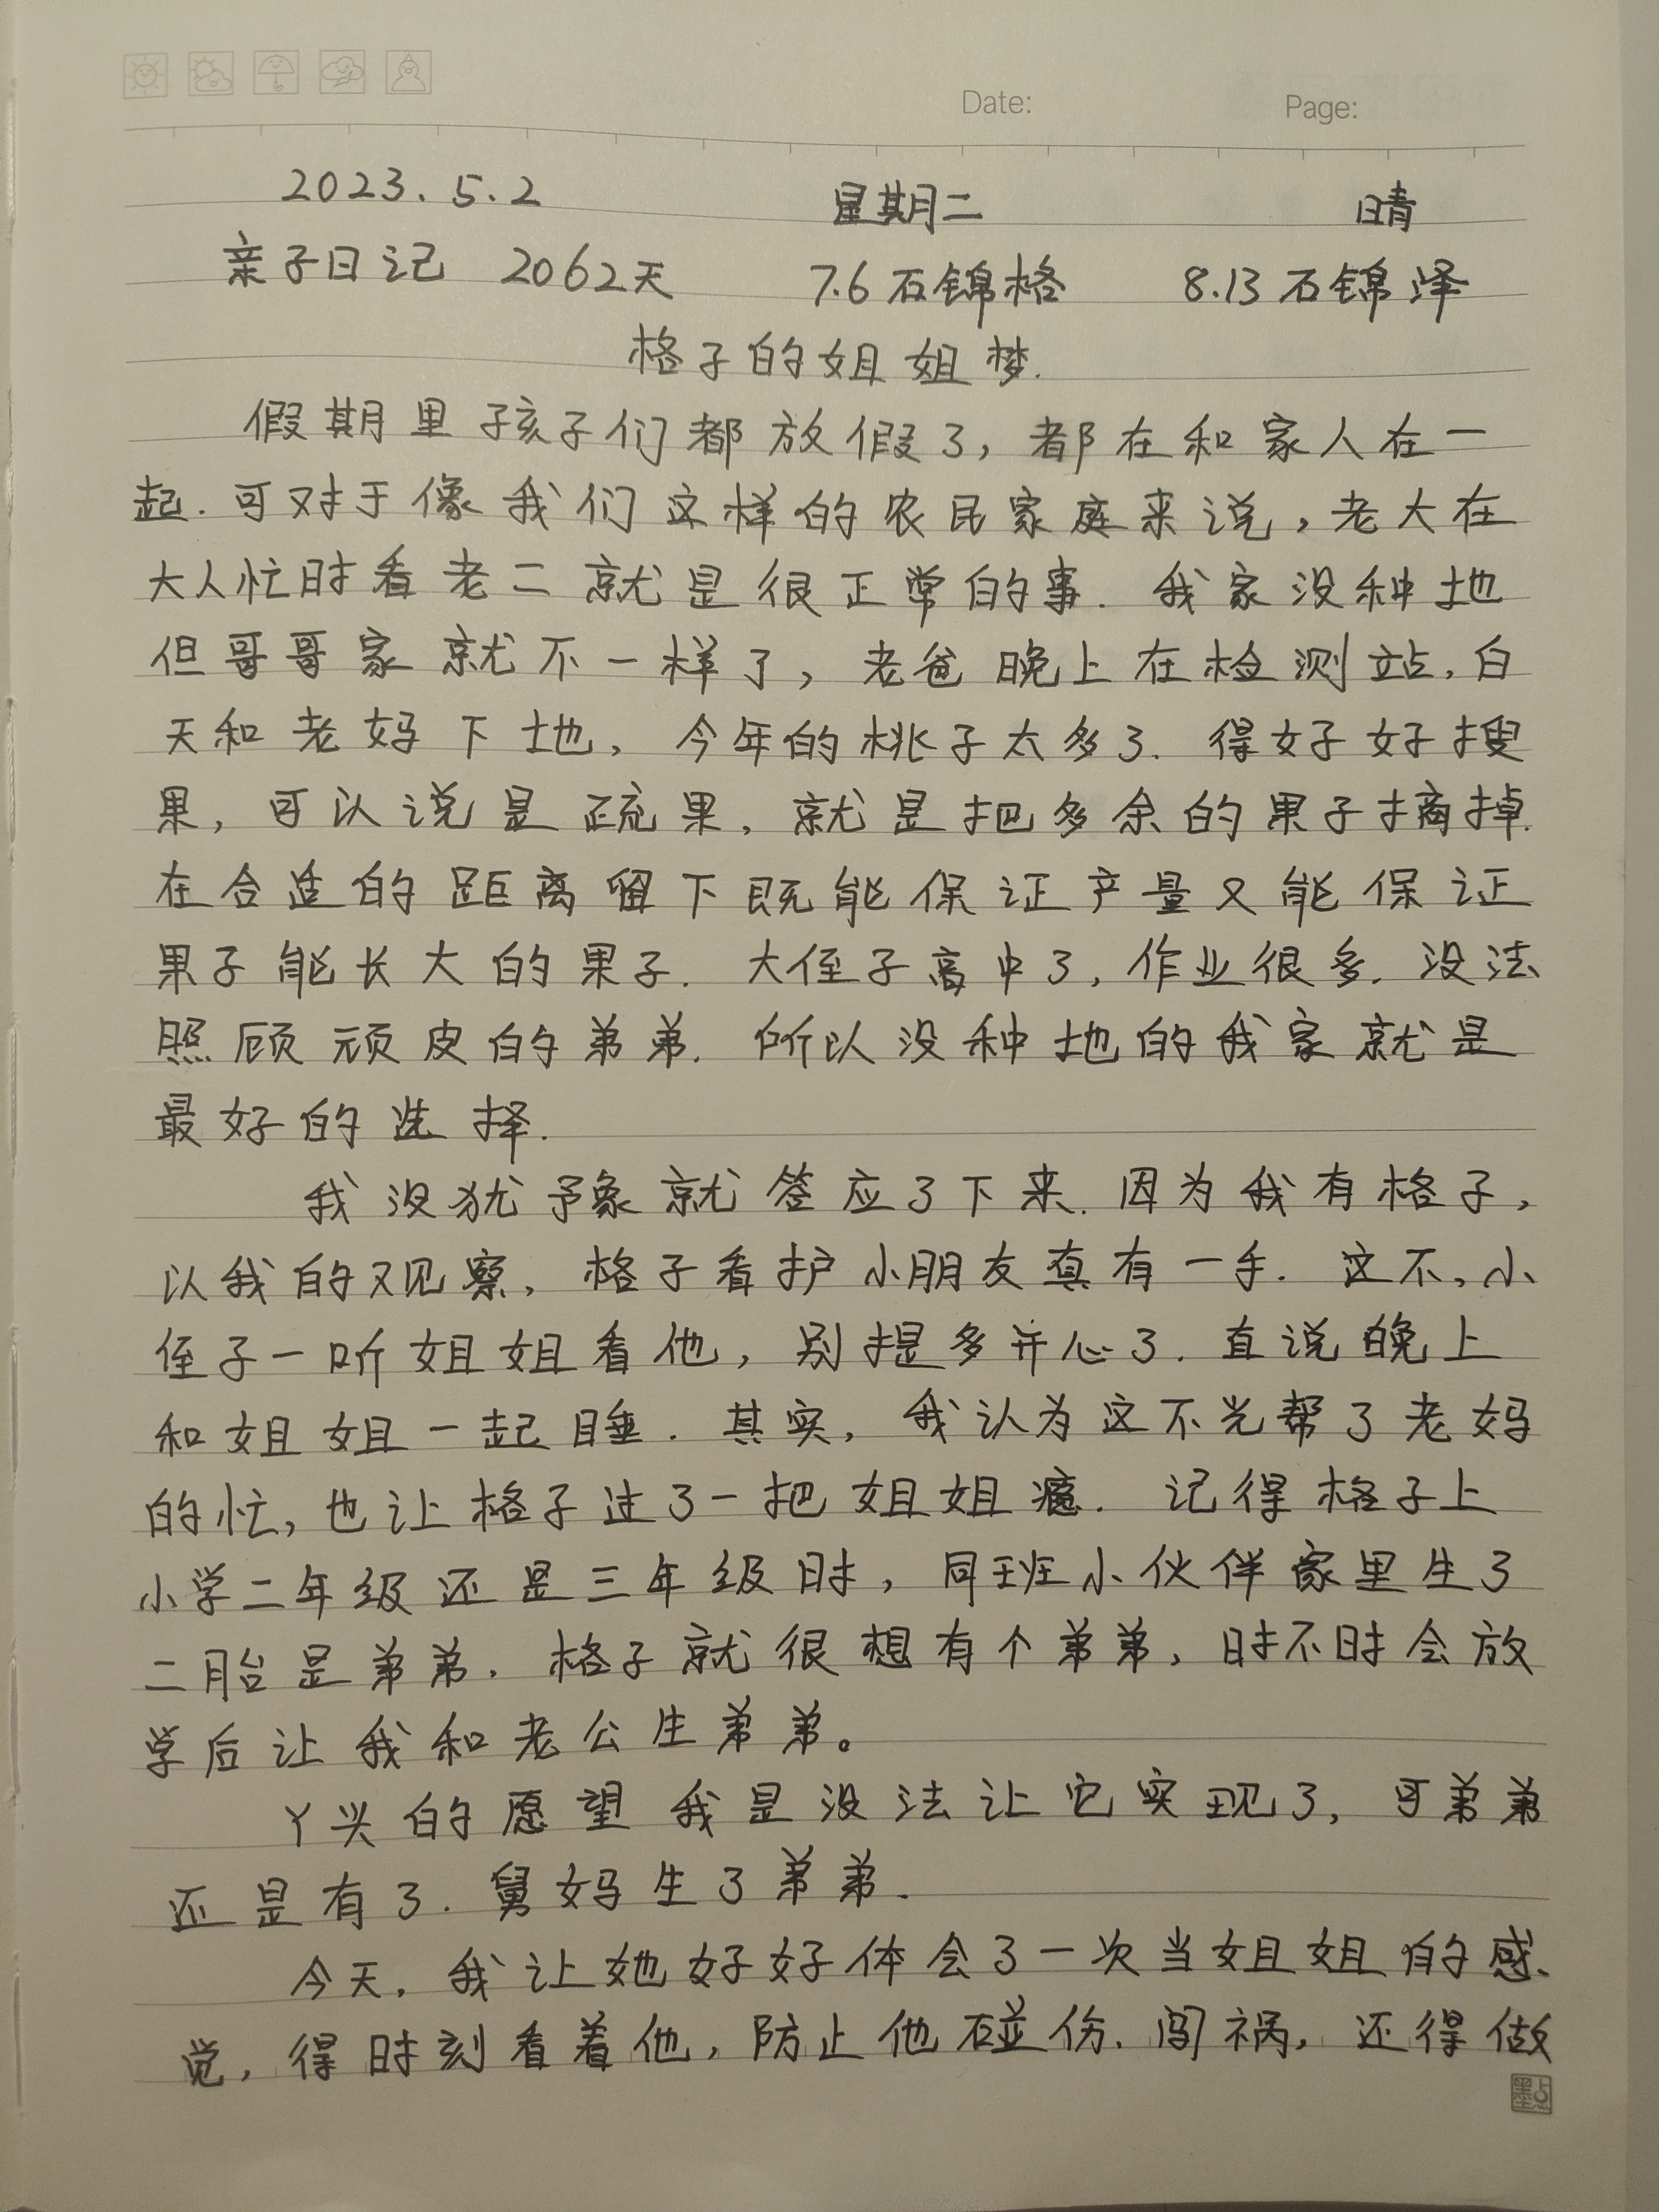 Date: Page:
2023.5.2 星期二 晴
亲子日记 2062天 7.6石锦格 8.13石锦泽
格子的姐姐梦.
假期里孩子们都放假了,都在和家人在一
起.可对于像我们这样的农民家庭来说,老大在
大人忙时看老二就是很正常的事.我家没种地
但哥哥家就不一样了,老爸晚上在检测站,白
天和老妈下地,今年的桃子太多了.得好好搜
果,可以说是疏果,就是把多余的果子摘掉.
在合适的距离留下既能保证产量又能保证
果子能长大的果子.大侄子高中了,作业很多.没法
照顾顽皮的弟弟.所以没种地的我家就是
最好的选择.
我没犹予象就答应了下来.因为我有格子,
以我的观察,格子看护小朋友真有一手.这不,小
侄子一听姐姐看他,别提多开心了.直说晚上
和姐姐一起睡.其实,我认为这不光帮了老妈
的忙,也让格子过了一把姐姐瘾.记得格子上
小学二年级还是三年级时,同班小伙伴家里生了
二胎是弟弟.格子就很想有个弟弟,时不时会放
学后让我和老公生弟弟。
丫头的愿望我是没法让它实现了,可弟弟
还是有了.舅妈生了弟弟.
今天,我让她好好体会了一次当姐姐的感
觉,得时刻看着他,防止他碰伤.闯祸,还得做
墨点